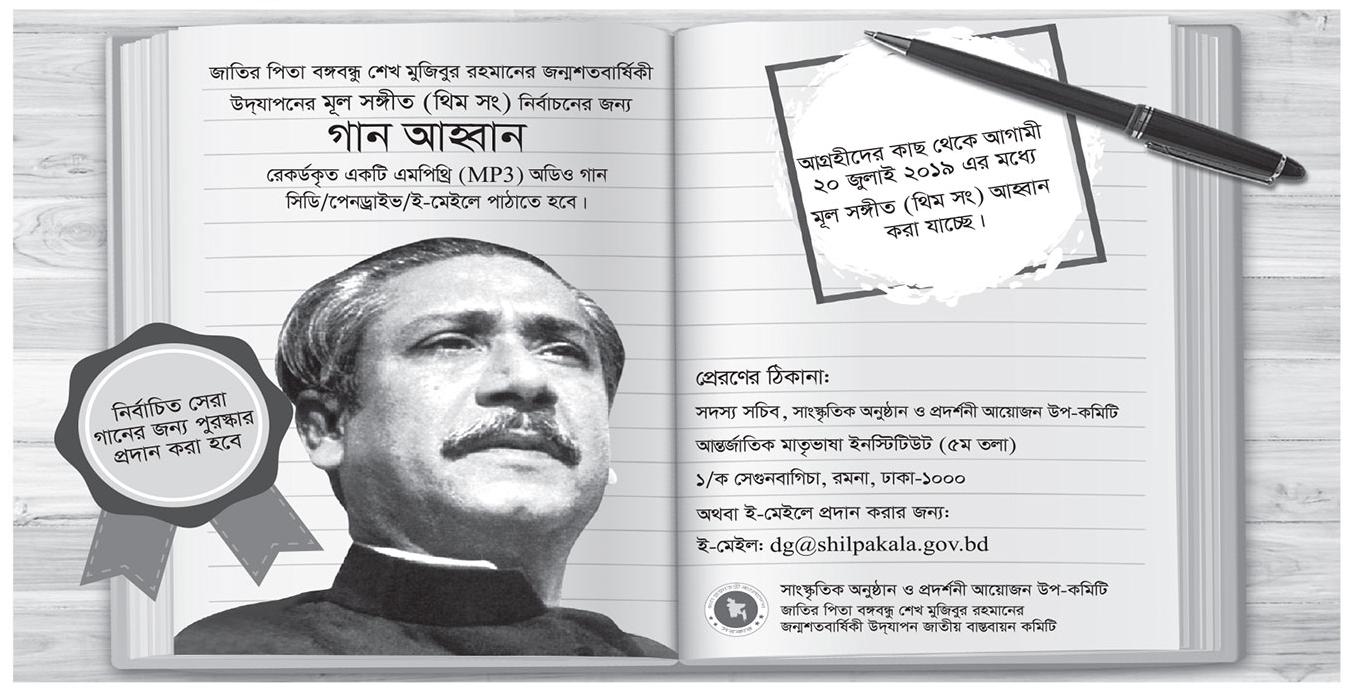 জাতির পিতা বঙ্গবন্ধু শেখ মুজিবুর রহমানের জন্মশতবার্ষিকী
উদ্‌যাপনের মূল সঙ্গীত (থিম সং) নির্বাচনের জন্য
গান আহ্বান
রেকর্ডকৃত একটি এমপিথ্রি (MP3) অডিও গান
সিডি/পেনড্রাইভ/ই-মেইলে পাঠাতে হবে।
নির্বাচিত সেরা
গানের জন্য পুরস্কার
প্রদান করা হবে
আগ্রহীদের কাছ থেকে আগামী
২০ জুলাই ২০১৯ এর মধ্যে
মূল সঙ্গীত (থিম সং) আহ্বান
করা যাচ্ছে।
প্রেরণের ঠিকানা:
সদস্য সচিব, সাংস্কৃতিক অনুষ্ঠান ও প্রদর্শনী আয়োজন উপ-কমিটি
আন্তর্জাতিক মাতৃভাষা ইনস্টিটিউট (৫ম তলা)
১/ক সেগুনবাগিচা, রমনা, ঢাকা-১০০০
অথবা ই-মেইলে প্রদান করার জন্য:
ই-মেইল: dg@shilpakala.gov.bd
সাংস্কৃতিক অনুষ্ঠান ও প্রদর্শনী আয়োজন উপ-কমিটি
জাতির পিতা বঙ্গবন্ধু শেখ মুজিবুর রহমানের
জন্মশতবার্ষিকী উদ্‌যাপন জাতীয় বাস্তবায়ন কমিটি